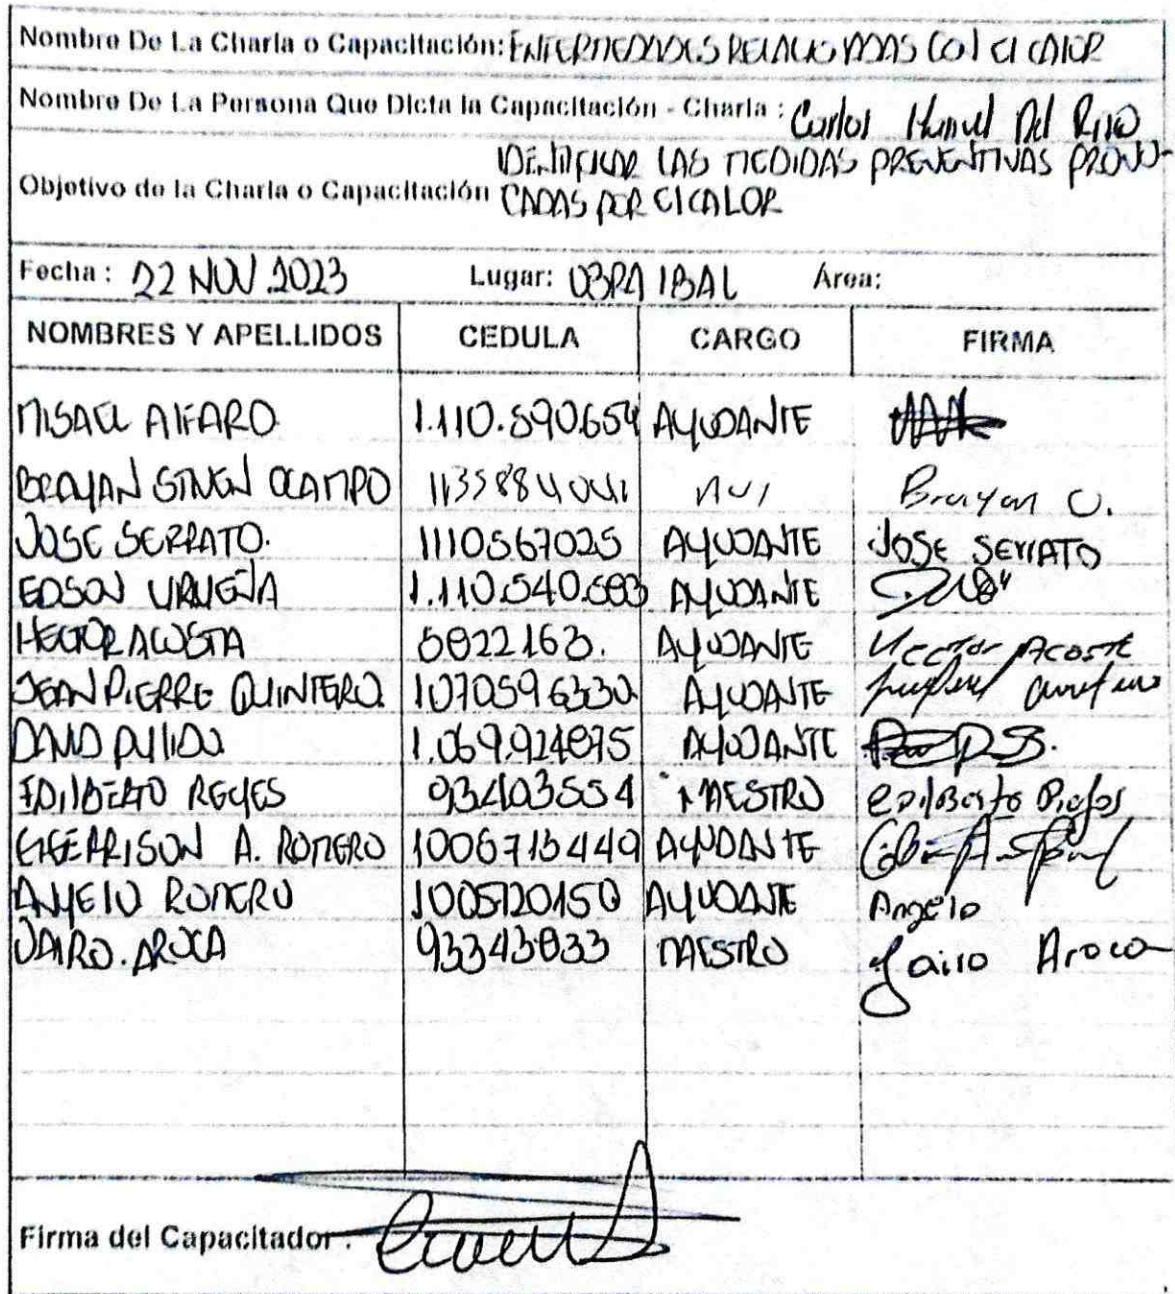 Nombre De La Charla o Capacitación: ENFERMEDADES RELACIONADAS CON El CALOR
Nombre De La Persona Que Dicta la Capacitación - Charla : Carlos Manuel Del Rio
IDENTIFICAR LAS MEDIDAS PREVENTIVAS PROVO-
Objetivo de la Charla o Capacitación CADAS POR El CALOR
Fecha : 22 NOV. 2023 Lugar: OBRA IBAL Área:
NOMBRES Y APELLIDOS CEDULA CARGO FIRMA
MISAEL AlFARO 1.110.590.654 AYUDANTE
BRAYAN STIVEN OCAMPO Brayan O.
JOSE SERRATO. 1110567025 AYUDANTE JOSE SERRATO
EDSON URUEÑA 1.110.540.583 AYUDANTE
HECTOR ACOSTA 5822163. AYUDANTE Hector Acosta
JEAN PIERRE QUINTERO 1070596330 AYUDANTE
DAVID PULIDO 1.069.924875 AYUDANTE
EDILBERTO REYES 93403554 MAESTRO edilberto Reyes
A. ROMERO 1006713449 AYUDANTE
ANJELO ROMERO 1005720150 AYUDANTE Angelo
JAIRO. AROCA 93343833 MAESTRO Jairo Aroca
Firma del Capacitador :